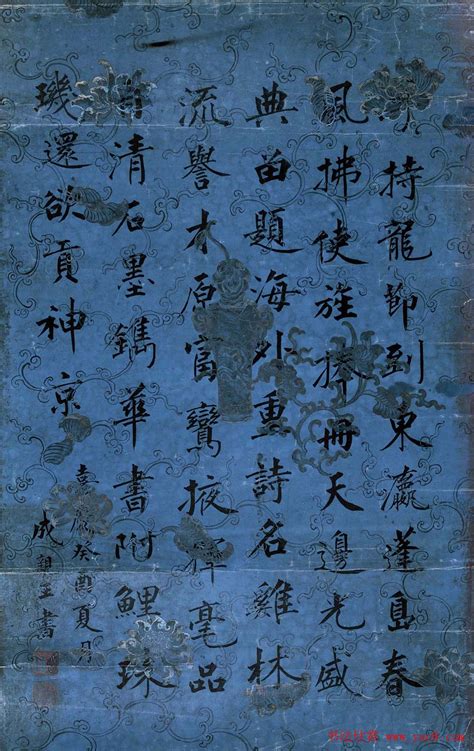 持龍節到東瀛蓬島春
風拂使旌捧冊天邊光盛
典留題海外重詩名雞林
流譽才原富鸞掖揮毫品
清石墨鐫華書附鯉珠
璣還欲貢神京
嘉慶癸酉夏月
成親王書
书法欣赏 www.yac8.com